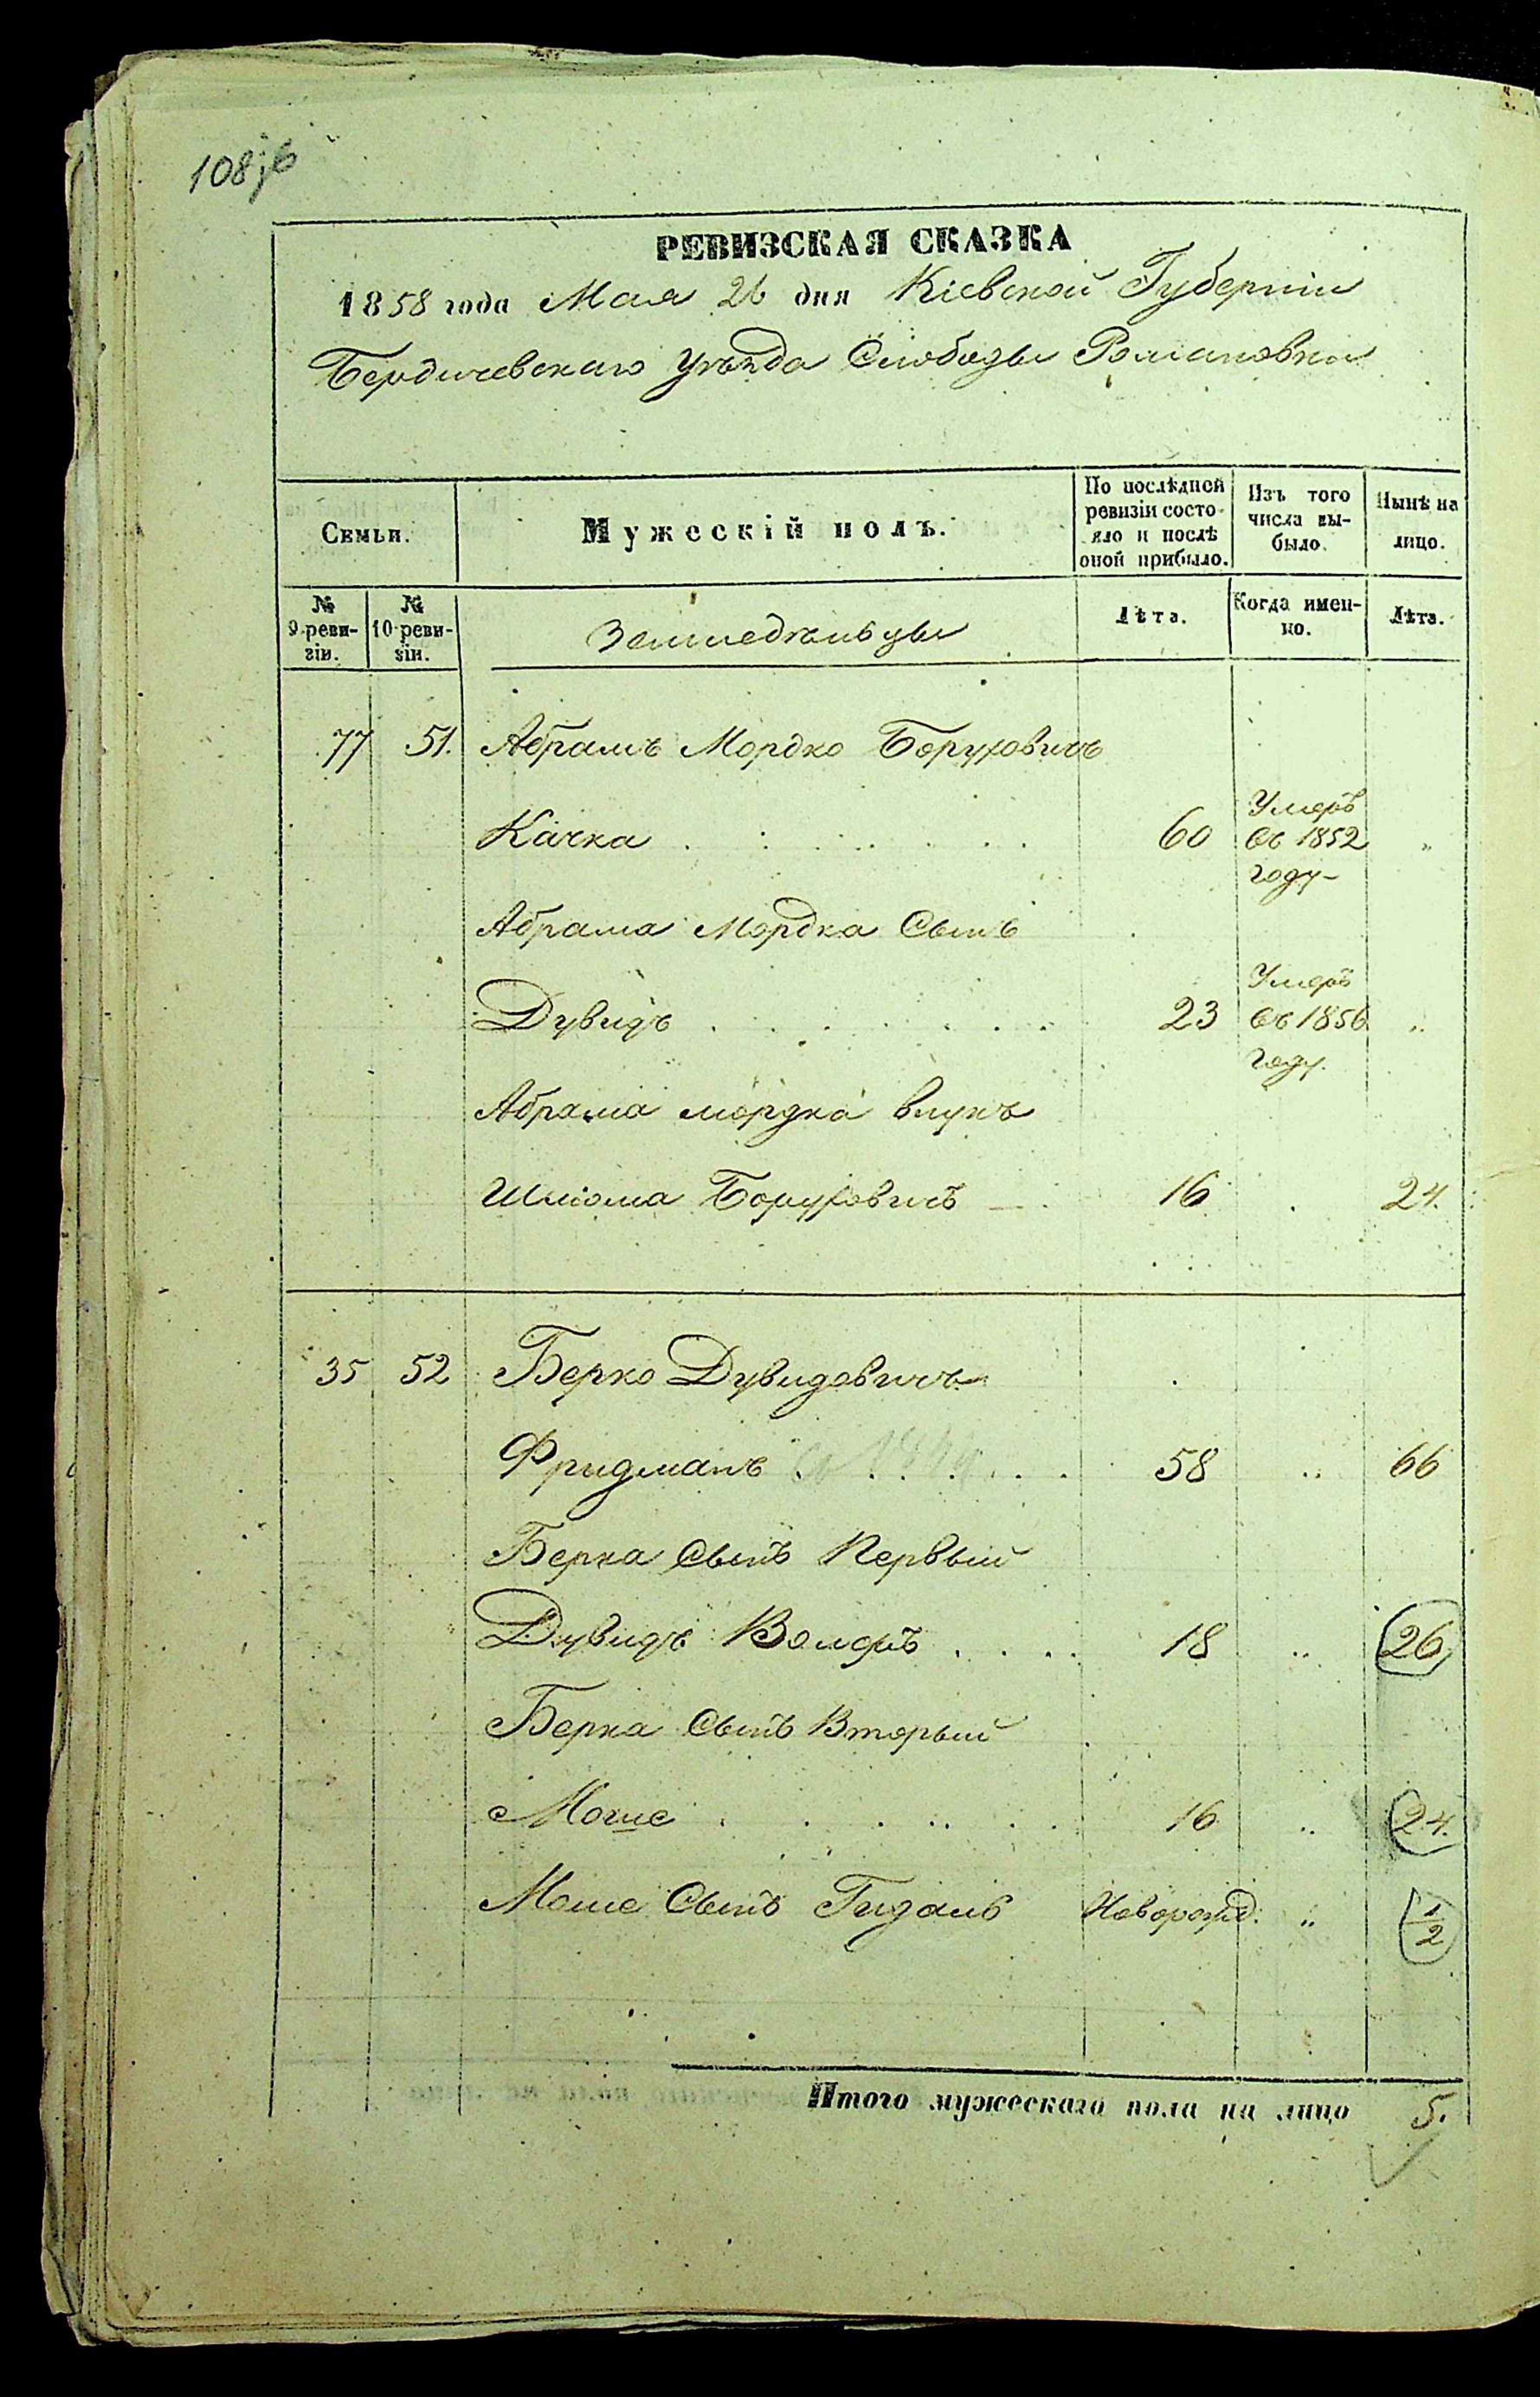 РЕВИЗСКАЯ СКАЗКА
1858 года Мая 26 дня Кіевской Губерніи
Бердичевскаго Уѣзда Слободы Романовки
Семьи.
Мужескій полъ.
По послѣдней ревизіи состояло и послѣ оной прибыло.
Изъ того числа выбыло.
Нынѣ на лицо.
№ 9 ревизіи.
№ 10 ревизіи.
Земледѣльцы
Лѣта.
Когда именно.
Лѣта.
77 51. Абрамъ Мордко Боруховичъ
Качка 60 Умеръ въ 1852 году „
Абрама Мордка Сынъ
Дувидъ 23 Умеръ въ 1856 году. „
Абрама мордка внукъ
Шлiома Боруховичъ 16 24.
35 52 Берко Дувидовичъ
Фридманъ 58 „ 66
Берка Сынъ Первый
Дувидъ Волфъ 18 „ 26
Берка Сынъ Вторый
Моше 16 „ 24.
Моше Сынъ Гидаль Новорожд. „ 1/2
Итого мужескаго пола на лицо 5.